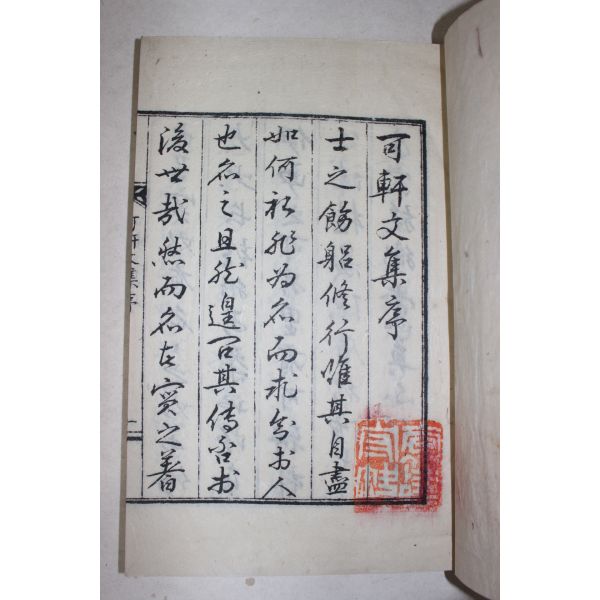 可軒文集序
士之飭躳修行惟其自盡
如何初非為名而求知於人
也名之且然遑問其傳否於
後世哉然而名在實之著
可軒文集序